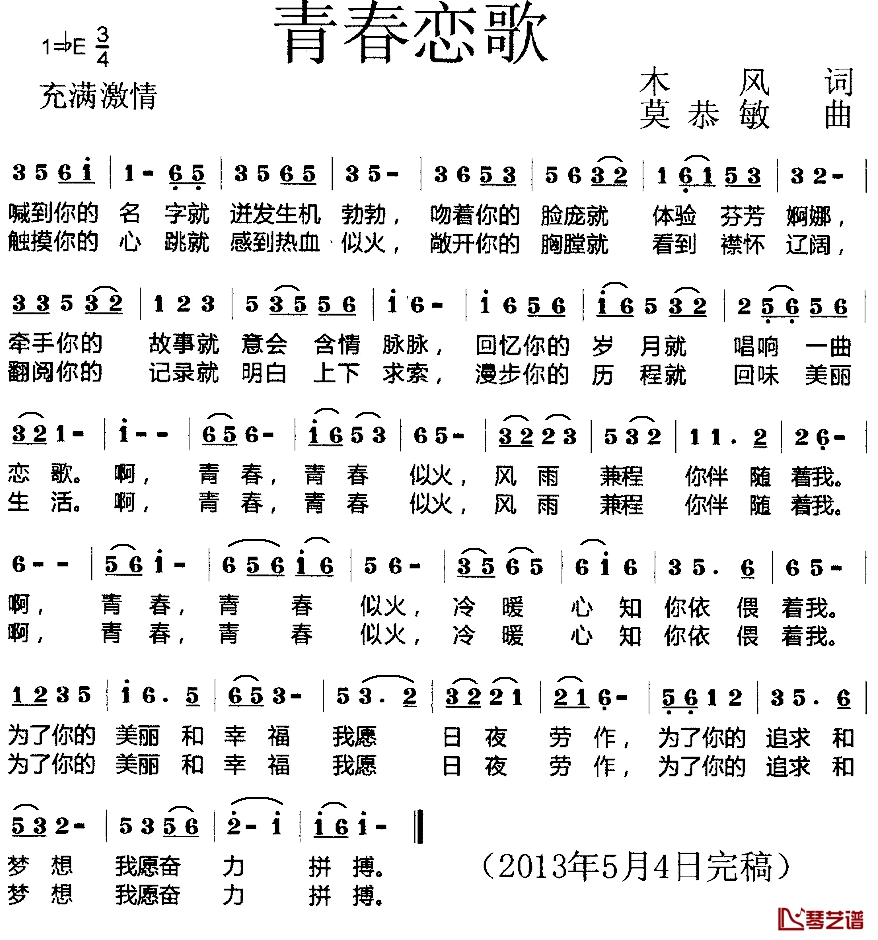 青春恋歌
1=♭E 3/4
充满激情
木 风 词
莫恭敏 曲
3 5 6 i | 1 - 6 5 | 3 5 6 5 | 3 5 - | 3 6 5 3 | 5 6 3 2 | 1 6 1 5 3 | 3 2 - |
喊到你的 名 字就 迸发生机 勃勃， 吻着你的 脸庞就 体验 芬芳 婀娜，
触摸你的 心 跳就 感到热血 似火， 敞开你的 胸膛就 看到 襟怀 辽阔，
3 3 5 3 2 | 1 2 3 | 5 3 5 5 6 | i 6 - | i 6 5 6 | i 6 5 3 2 | 2 5 6 5 6 |
牵手你的 故事就 意会 含情 脉脉， 回忆你的 岁 月就 唱响 一曲
翻阅你的 记录就 明白 上下 求索， 漫步你的 历 程就 回味 美丽
3 2 1 - | i - - | 6 5 6 - | i 6 5 3 | 6 5 - | 3 2 2 3 | 5 3 2 | 1 1 . 2 | 2 6 - |
恋 歌。 啊， 青 春， 青 春 似火， 风 雨 兼程 你伴 随 着我。
生 活。 啊， 青 春， 青 春 似火， 风 雨 兼程 你伴 随 着我。
6 - - | 5 6 i - | 6 5 6 i 6 | 5 6 - | 3 5 6 5 | 6 i 6 | 3 5 . 6 | 6 5 - |
啊， 青 春， 青 春 似火， 冷 暖 心 知 你依 偎 着我。
啊， 青 春， 青 春 似火， 冷 暖 心 知 你依 偎 着我。
1 2 3 5 | i 6 . 5 | 6 5 3 - | 5 3 . 2 | 3 2 2 1 | 2 1 6 - | 5 6 1 2 | 3 5 . 6 |
为了你的 美丽 和 幸 福 我愿 日 夜 劳 作， 为了你的 追求 和
为了你的 美丽 和 幸 福 我愿 日 夜 劳 作， 为了你的 追求 和
5 3 2 - | 5 3 5 6 | 2 - i | i 6 i - ‖
梦 想 我愿奋 力 拼 搏。
梦 想 我愿奋 力 拼 搏。
（2013年5月4日完稿）
琴艺谱